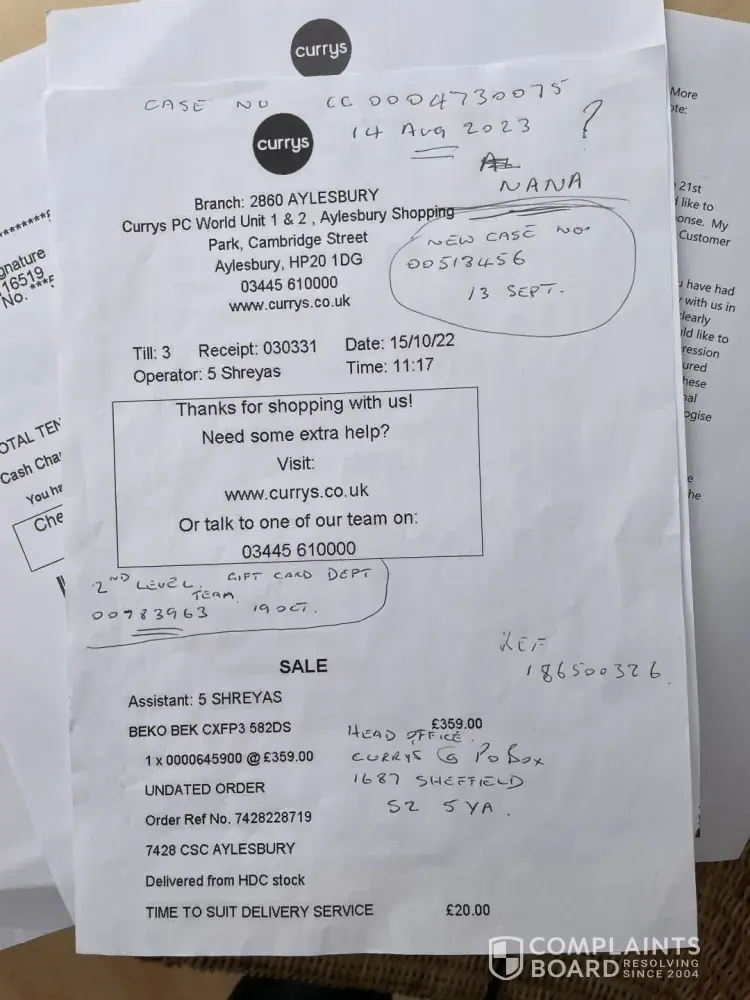 currys
CASE NO CC 0004730075
14 AUG 2023 ?
currys
NANA
Branch: 2860 AYLESBURY
Currys PC World Unit 1 & 2 , Aylesbury Shopping
Park, Cambridge Street
Aylesbury, HP20 1DG
03445 610000
www.currys.co.uk
NEW CASE NO.
00513456
13 SEPT.
Till: 3 Receipt: 030331 Date: 15/10/22
Operator: 5 Shreyas Time: 11:17
Thanks for shopping with us!
Need some extra help?
Visit:
www.currys.co.uk
Or talk to one of our team on:
03445 610000
2ND LEVEL. GIFT CARD DEPT
TEAM.
00783963 19 OCT.
REF
186500326.
SALE
Assistant: 5 SHREYAS
BEKO BEK CXFP3 582DS £359.00
1 x 0000645900 @ £359.00
HEAD OFFICE.
CURRYS PO BOX
1687 SHEFFIELD
S2 5YA.
UNDATED ORDER
Order Ref No. 7428228719
7428 CSC AYLESBURY
Delivered from HDC stock
TIME TO SUIT DELIVERY SERVICE £20.00
gnature
16519
No. ***
OTAL TEN
Cash Cha
You ha
Che
More
ote:
21st
like to
onse. My
Customer
have had
with us in
learly
ld like to
ression
ured
hese
nal
ogise
e
he
COMPLAINTS
BOARD RESOLVING
SINCE 2004